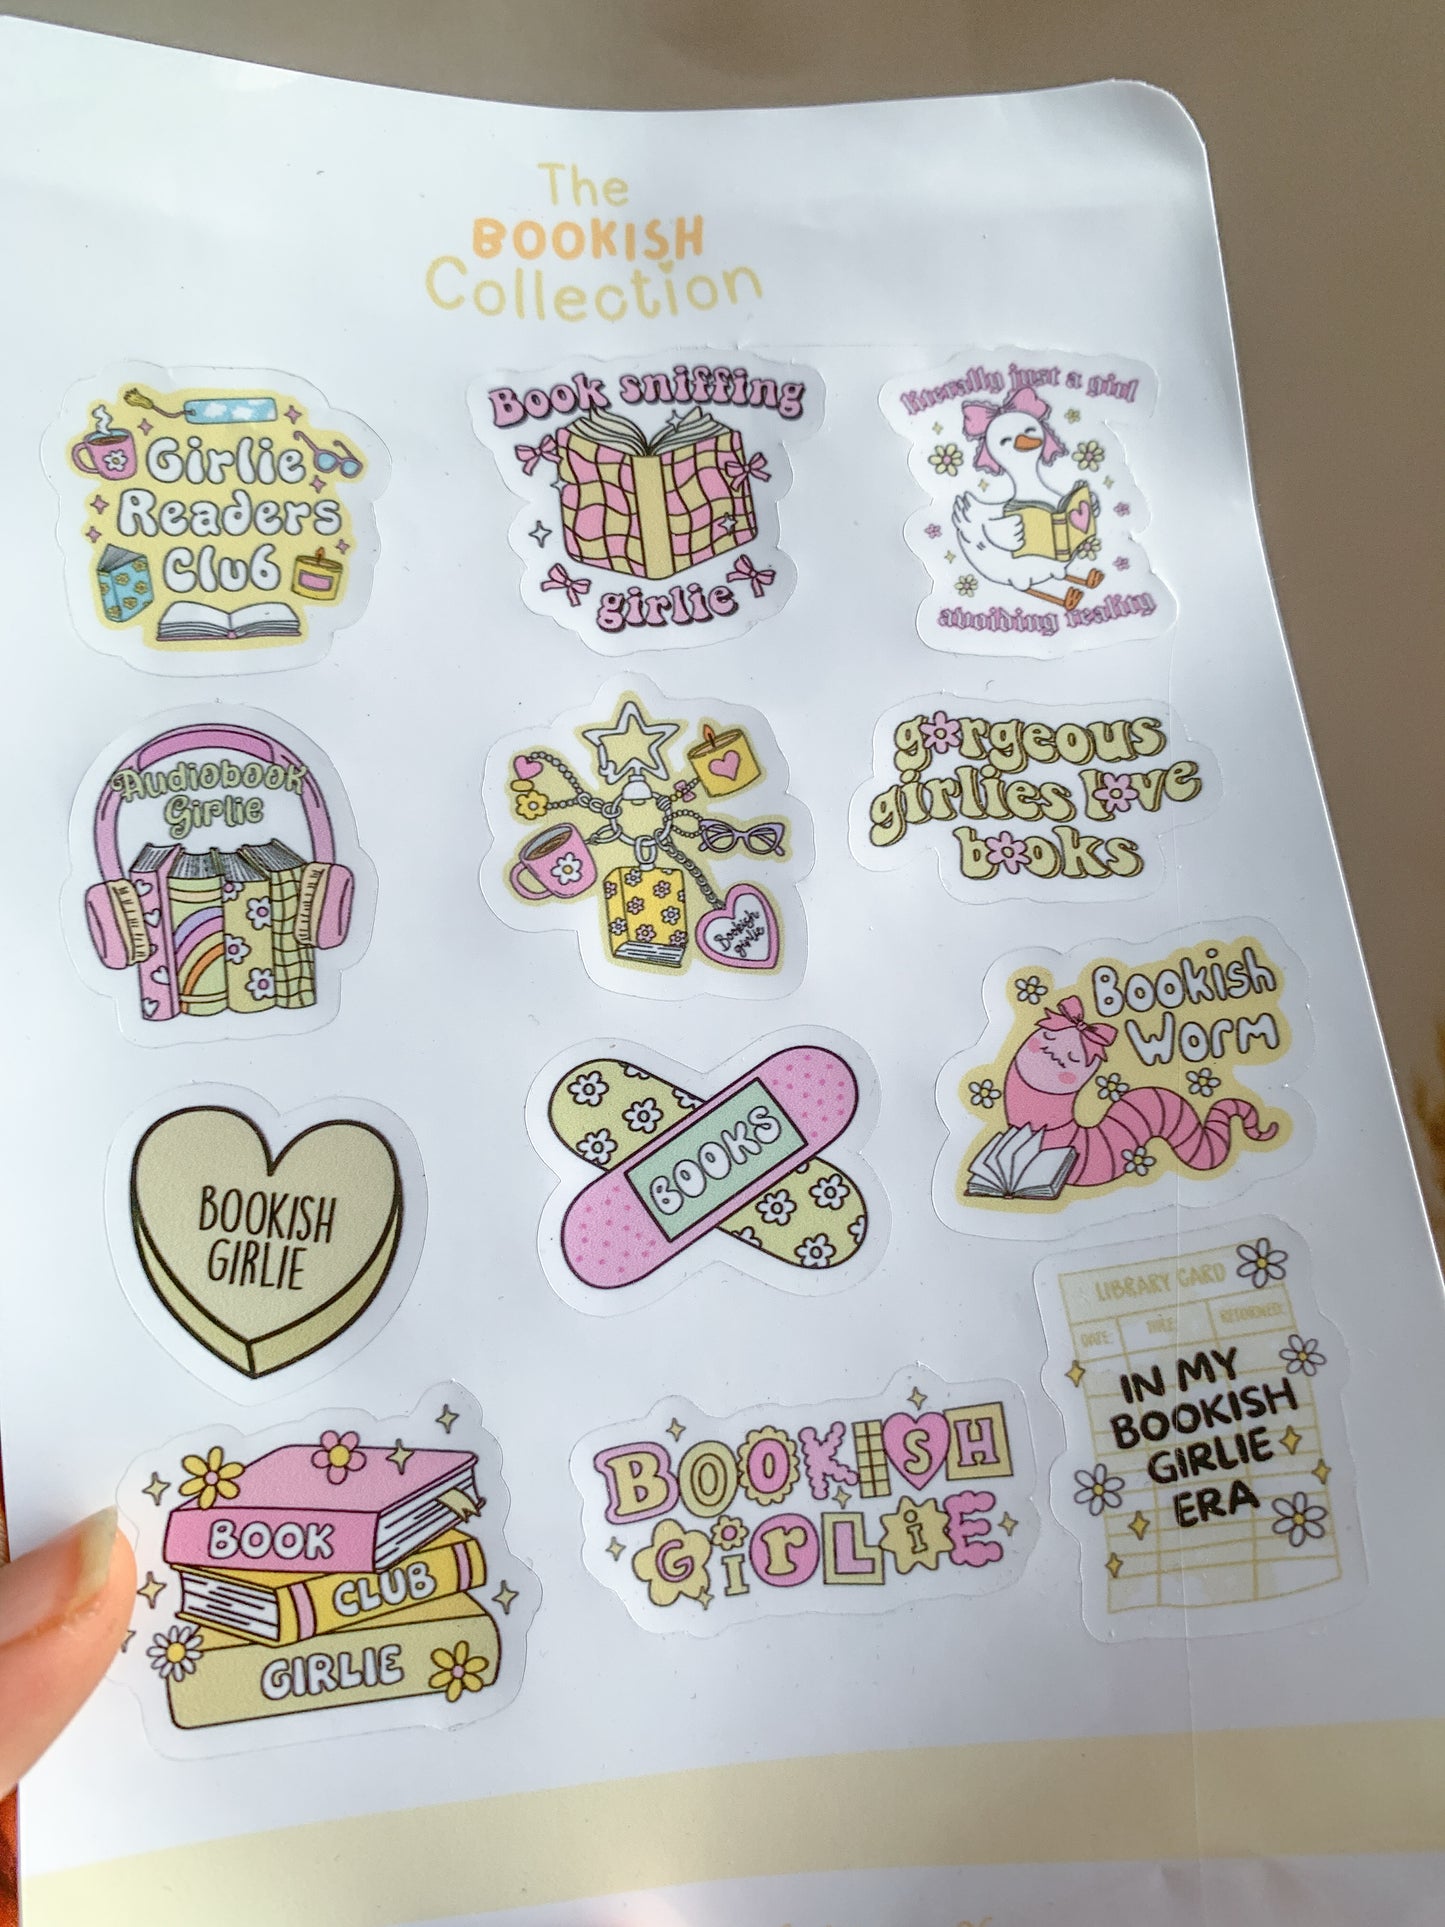 The
BOOKISH
Collection
Girlie
Readers
Club
Book sniffing
girlie
literally just a girl
avoiding reality
Audiobook
Girlie
Bookish
girlie
gorgeous
girlies love
books
BOOKISH
GIRLIE
BOOKS
Bookish
Worm
BOOK
CLUB
GIRLIE
BOOKISH
GiRLiE
LIBRARY CARD
DATE: TITLE: RETURNED:
IN MY
BOOKISH
GIRLIE
ERA